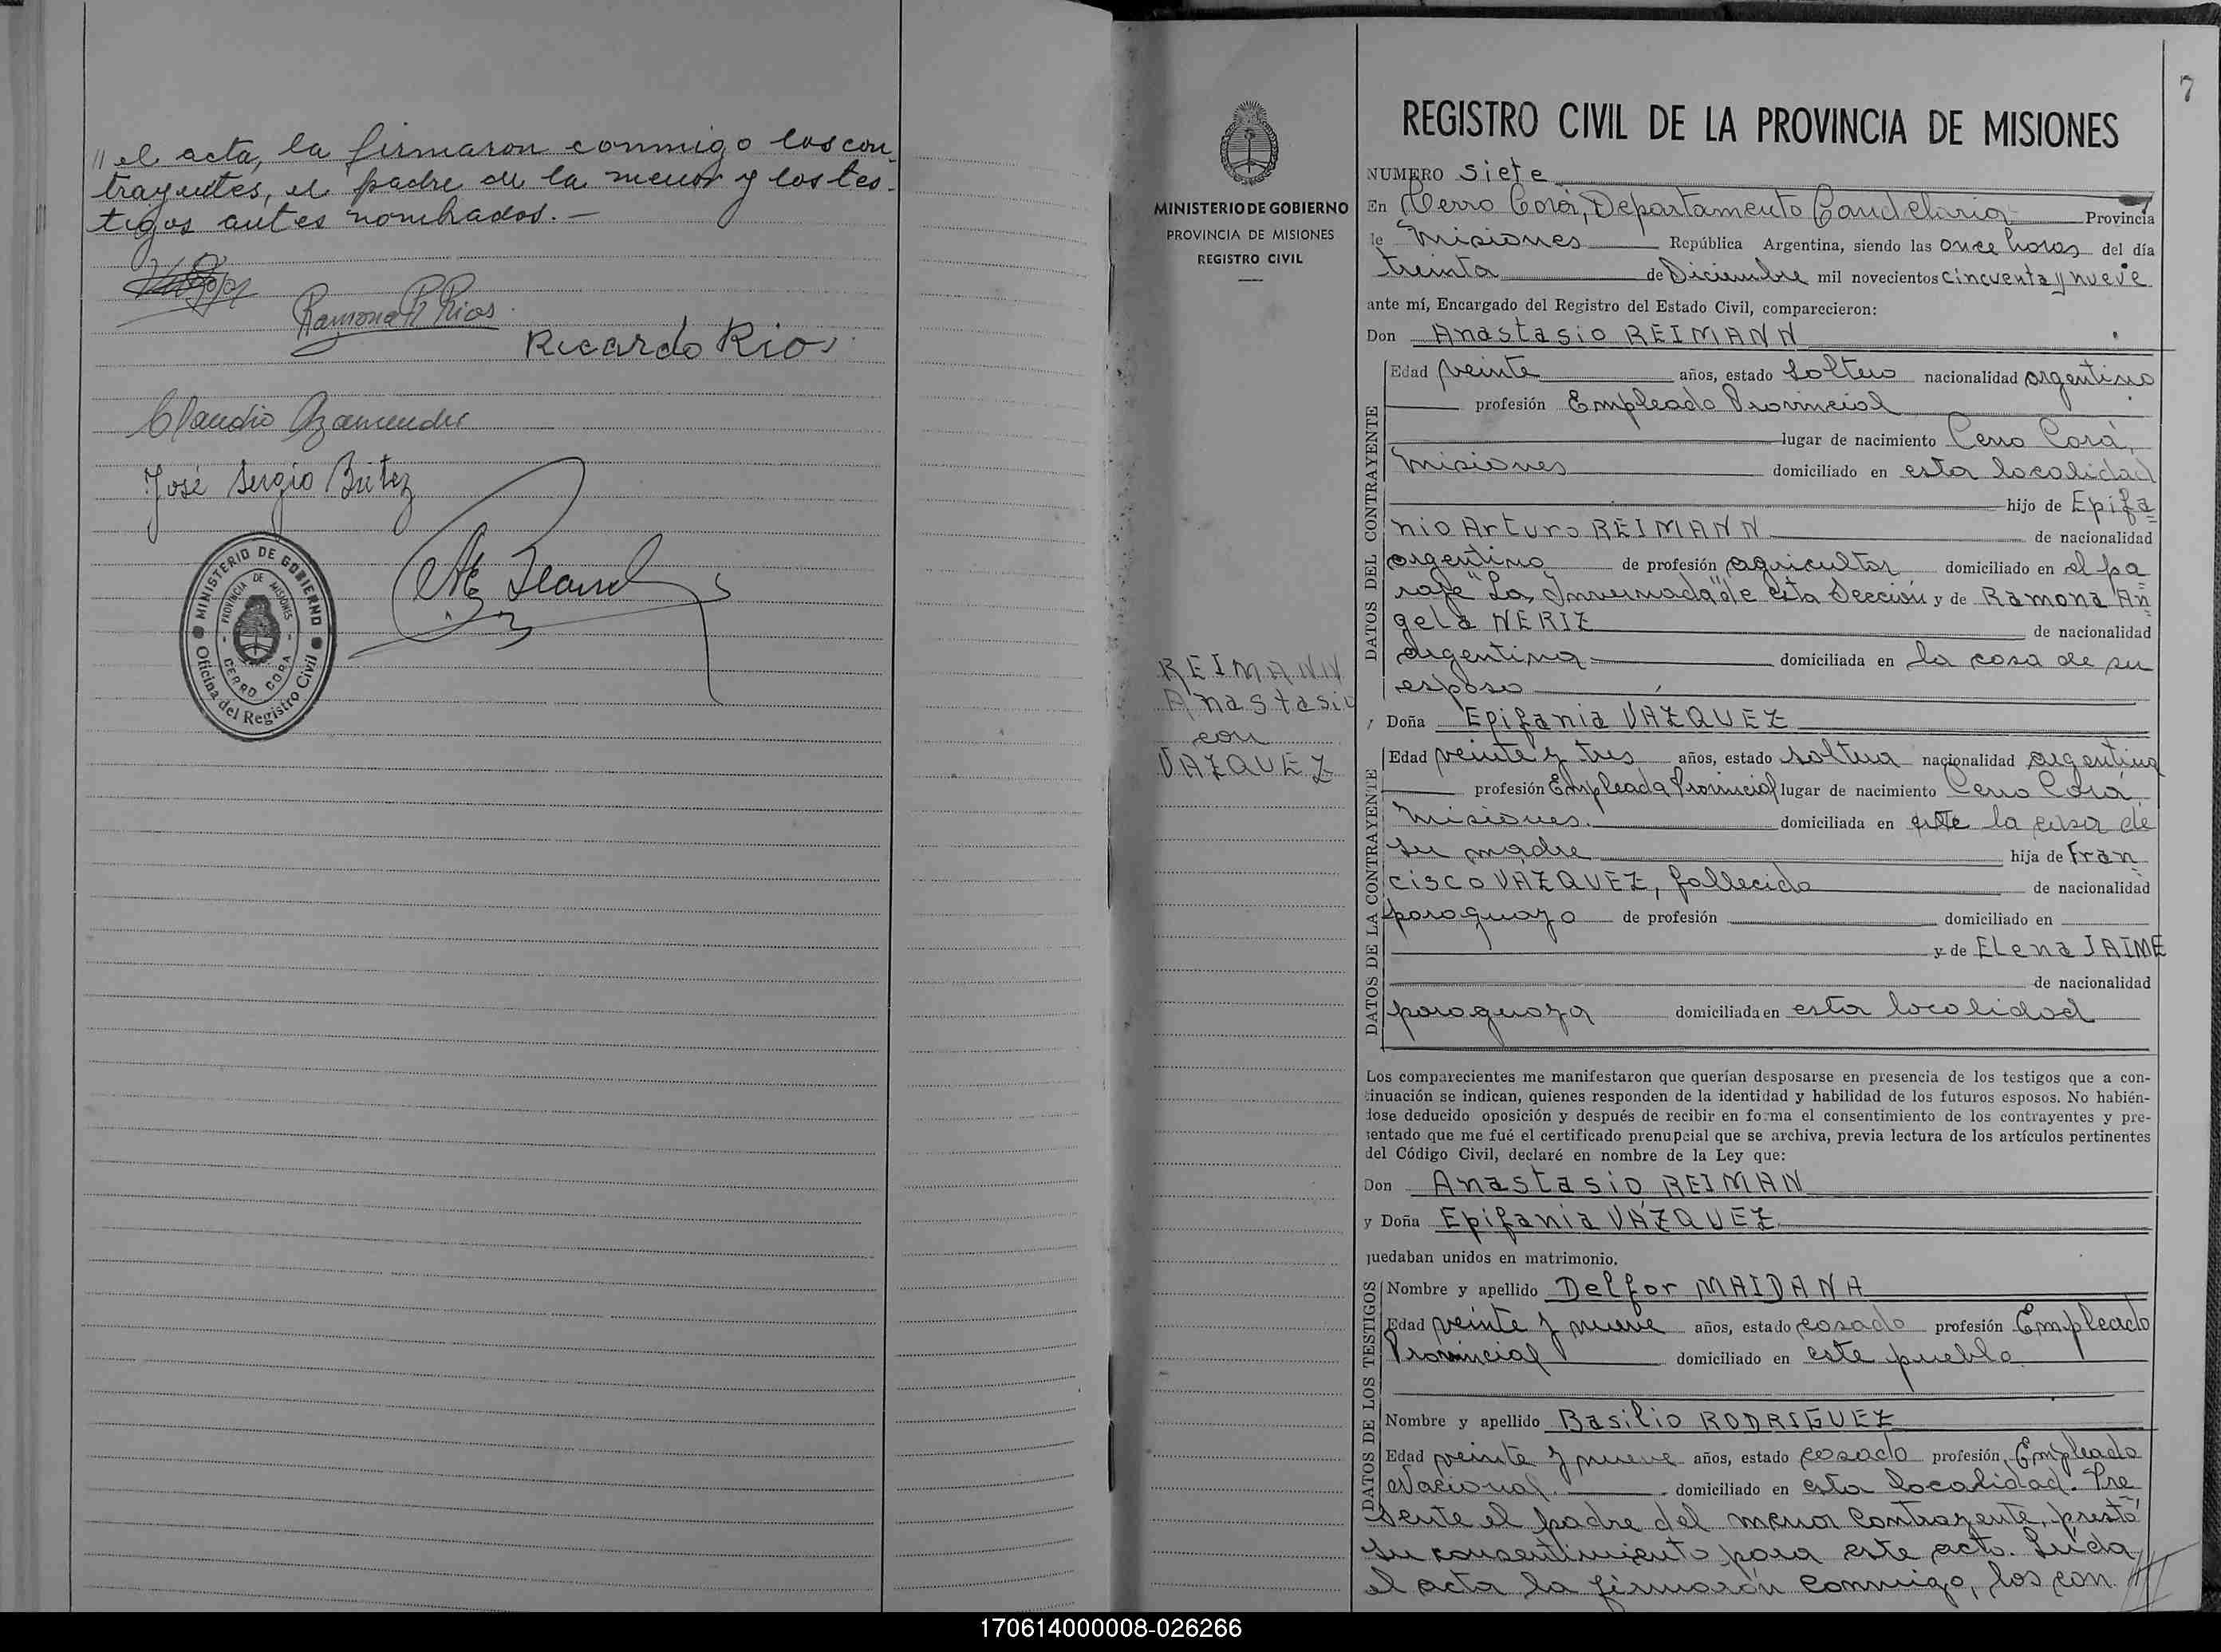 // el acta, la firmaron conmigo los con
trayentes, el padre de la menor y los tes-
tigos antes nombrados. —
Ramona R Rios
Ricardo Rios
Claudio
José Sergio
MINISTERIO DE GOBIERNO
PROVINCIA DE MISIONES
CERRO CORA
Oficina del Registro Civil
MINISTERIO DE GOBIERNO
PROVINCIA DE MISIONES
REGISTRO CIVIL
REIMANN
Anastasio
con
VAZQUEZ
7
REGISTRO CIVIL DE LA PROVINCIA DE MISIONES
NUMERO Siete
En Cerro Corá, Departamento Candelaria Provincia
de Misiones República Argentina, siendo las once horas del día
treinta de Diciembre mil novecientos cincuenta y nueve
ante mí, Encargado del Registro del Estado Civil, comparecieron:
Don Anastasio REIMANN
DATOS DEL CONTRAYENTE
Edad veinte años, estado soltero nacionalidad argentino
profesión Empleado Provincial
lugar de nacimiento Cerro Corá,
Misiones domiciliado en esta localidad
hijo de Epifa
nio Arturo REIMANN de nacionalidad
argentino de profesión agricultor domiciliado en el pa
raje "La Invernada" de esta Sección y de Ramona An
gela NERIZ de nacionalidad
argentina domiciliada en la casa de su
esposo
y Doña Epifania VAZQUEZ
DATOS DE LA CONTRAYENTE
Edad veinte y tres años, estado soltera nacionalidad argentina
profesión Empleada Provincial lugar de nacimiento Cerro Corá,
Misiones. domiciliada en la casa de
su madre hija de Fran
cisco VAZQUEZ, fallecido de nacionalidad
paraguayo de profesión domiciliado en
y de Elena JAIME
de nacionalidad
paraguaya domiciliada en esta localidad
Los comparecientes me manifestaron que querían desposarse en presencia de los testigos que a con-
tinuación se indican, quienes responden de la identidad y habilidad de los futuros esposos. No habién-
dose deducido oposición y después de recibir en forma el consentimiento de los contrayentes y pre-
sentado que me fué el certificado prenupcial que se archiva, previa lectura de los artículos pertinentes
del Código Civil, declaré en nombre de la Ley que:
Don Anastasio REIMAN
y Doña Epifania VÁZQUEZ
quedaban unidos en matrimonio.
DATOS DE LOS TESTIGOS
Nombre y apellido Delfor MAIDANA
Edad veinte y nueve años, estado casado profesión Empleado
Provincial domiciliado en este pueblo
Nombre y apellido Basilio RODRIGUEZ
Edad veinte y nueve años, estado casado profesión Empleado
Nacional. domiciliado en esta localidad. Pre
sente el padre del menor contrayente, prestó
su consentimiento para este acto. Leída
el acta la firmarón conmigo, los con //
170614000008-026266